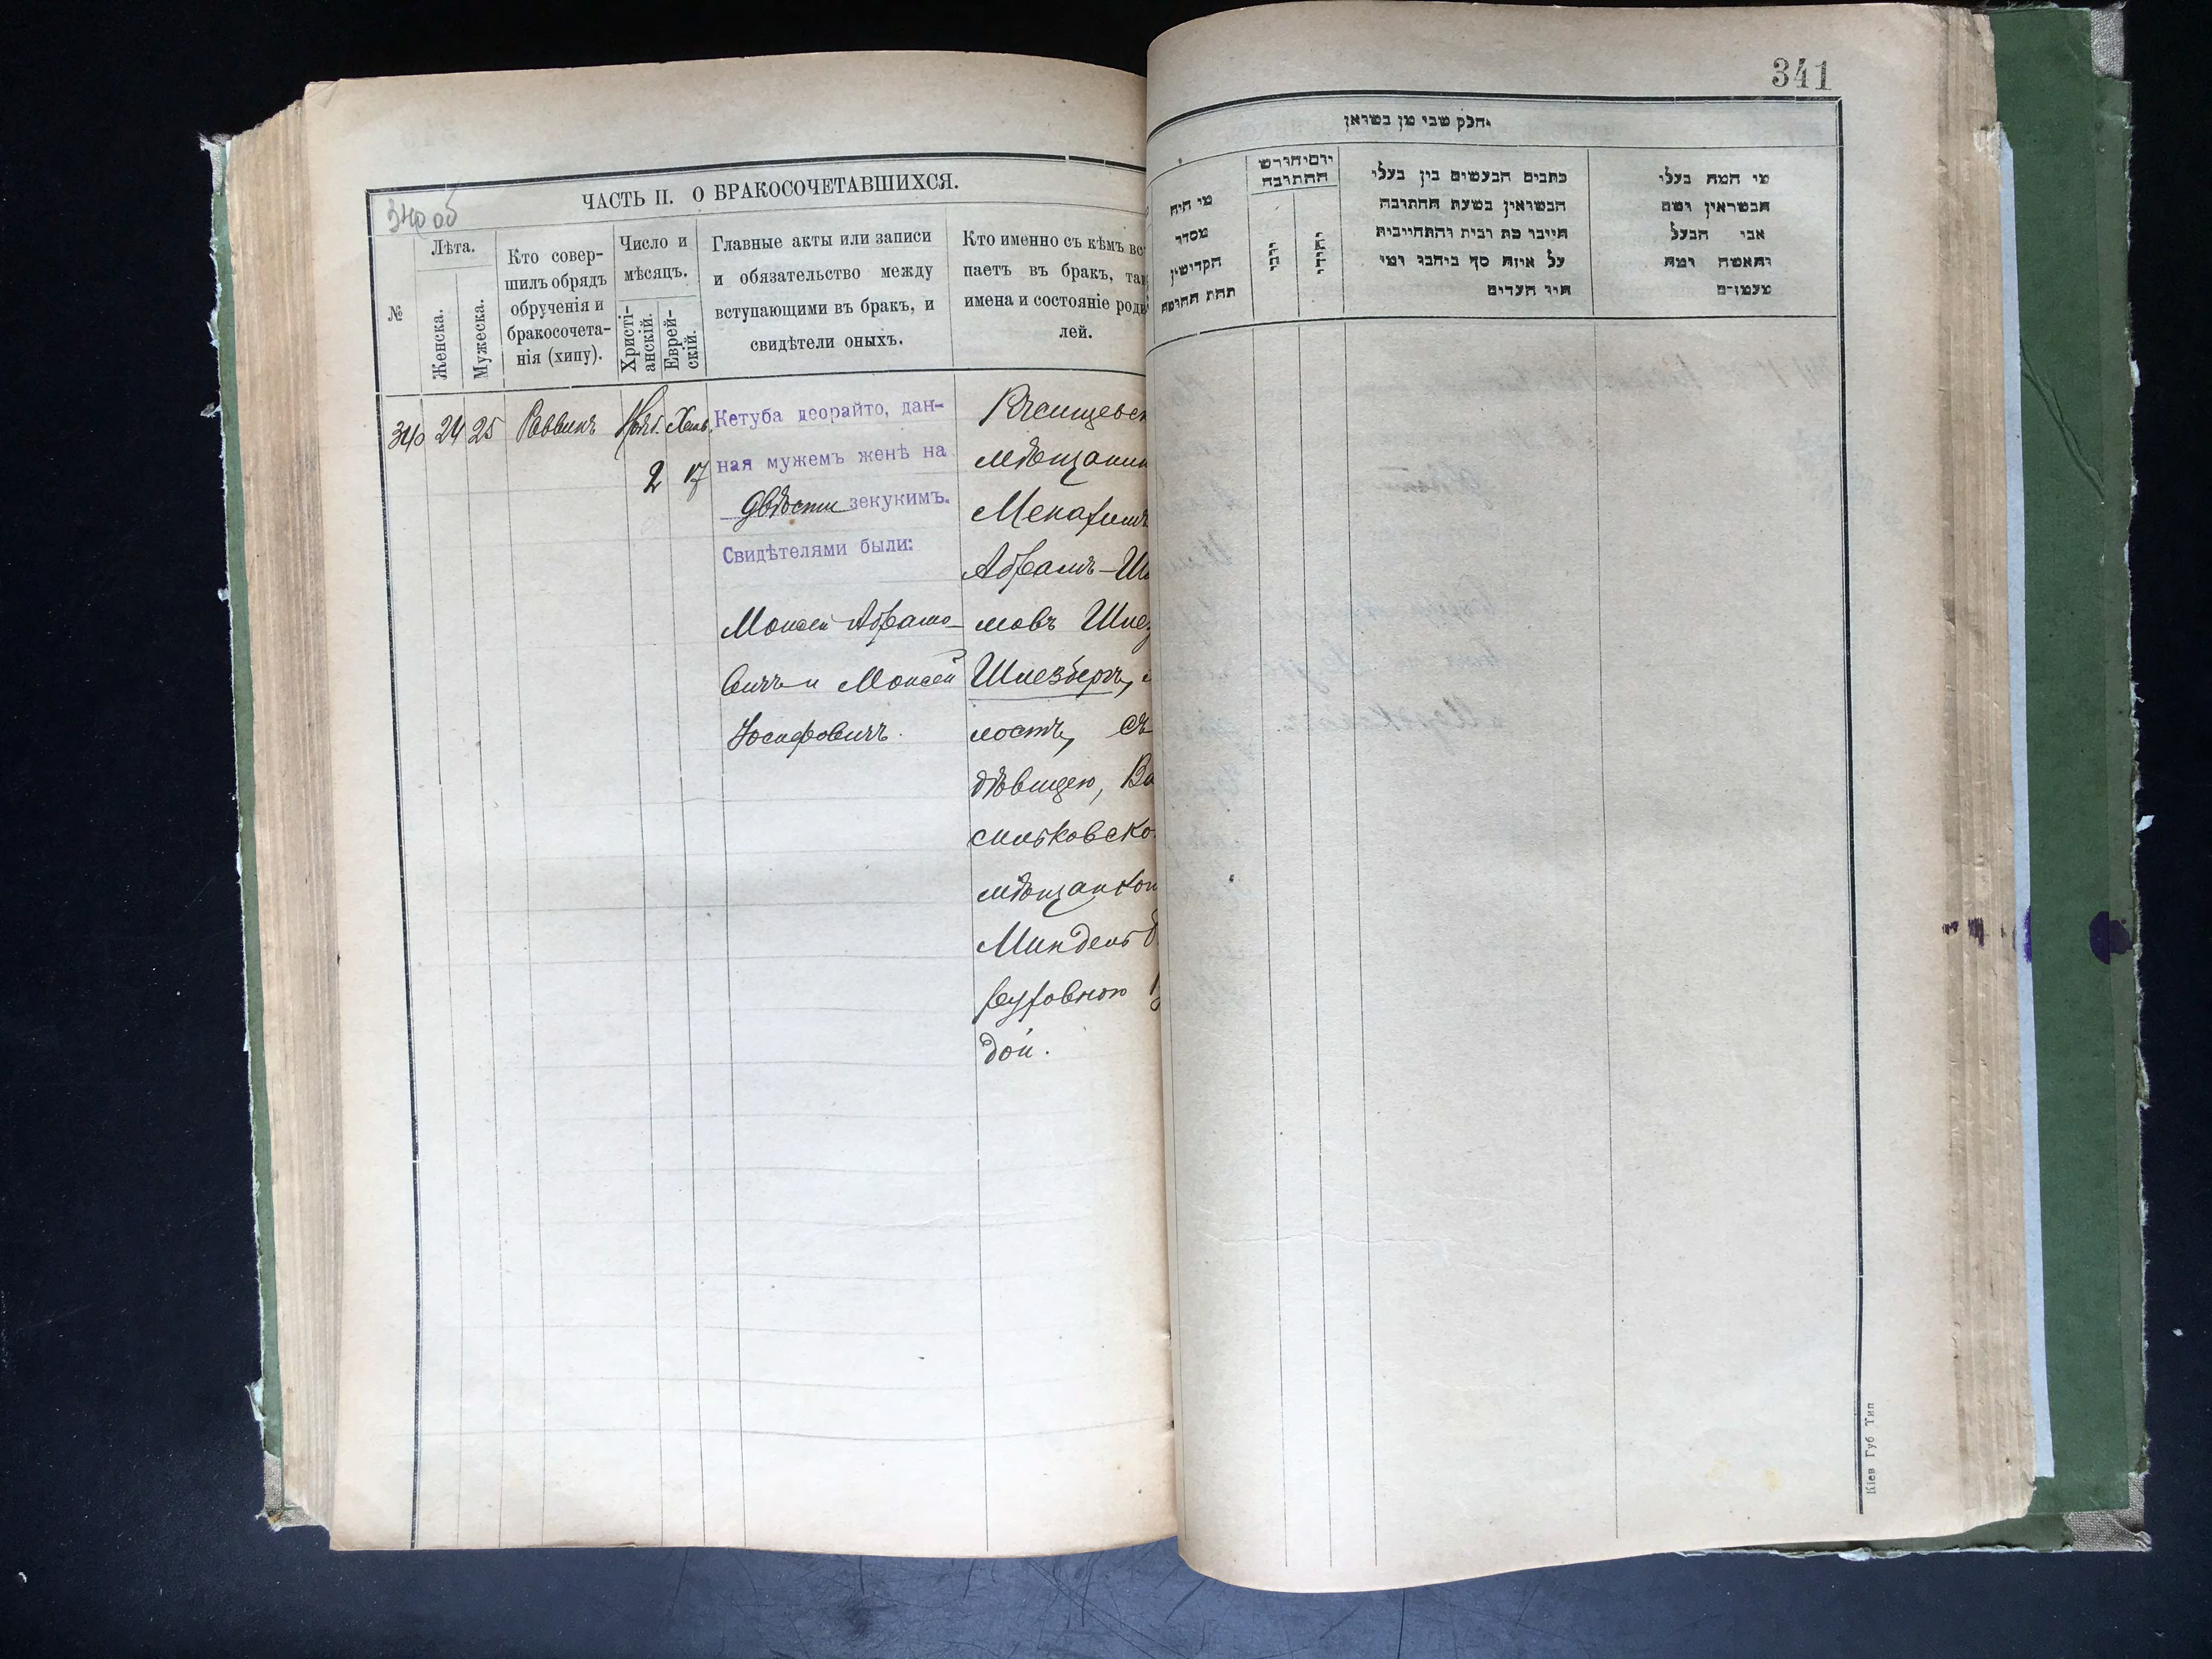 341
340 об
ЧАСТЬ II. О БРАКОСОЧЕТАВШИХСЯ.
№
Лѣта.
Женска.
Мужеска.
Кто совер-
шилъ обрядъ
обрученія и
бракосочета-
нія (хипу).
Число и
мѣсяцъ.
Христі-
анскій.
Еврей-
скій.
Главные акты или записи
и обязательство между
вступающими въ брак, и
свидѣтели оныхъ.
Кто именно съ кѣмъ вс
паетъ въ бракъ, та
имена и состояніе род
лей.
340 24 25 Раввинъ Нояб. Хешв.
2 17
Кетуба деорайто, дан-
ная мужемъ женѣ на
двѣсти зекукимъ.
Свидѣтелями были:
Моисей Абрамо-
вичъ и Моисей
Іосифовичъ.
мѣщанин
Абрамъ-Ш
мовъ
Шлезберъ,
лостъ, съ
дѣвицею, Ва
сильковско
мѣщанкой
Миндель
дой.
חלק שני מן נשואן
מי היה
מסדר
הקדושין
תחת החופה
יום וחודש
החתונה
נוצרי
יהודי
כתבים הנעשים בין בעלי
הנשואין בשעת החתונה
חייבו כת ובית והתחייבות
על איזה סך ביחבו ומי
היו העדים
מי המה בעלי
הנשואין ושם
אבי הבעל
והאשה ומה
מעמדם
Кіев Губ Тип